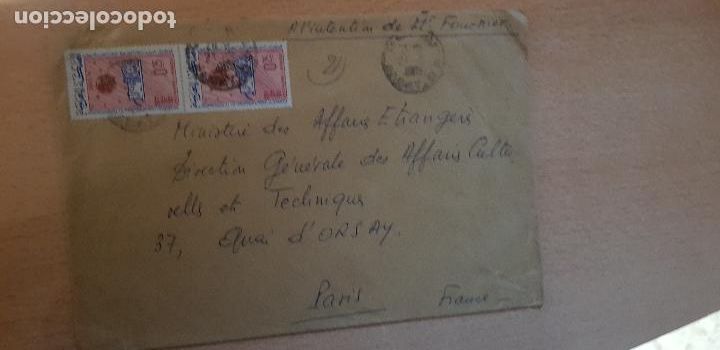 todocoleccion.net
A l'intention de Mr Fournier
21
Ministère des Affaires Etrangères
Direction Générale des Affaires Cultu-
relles et Techniques
37, Quai d'ORSAY.
Paris France